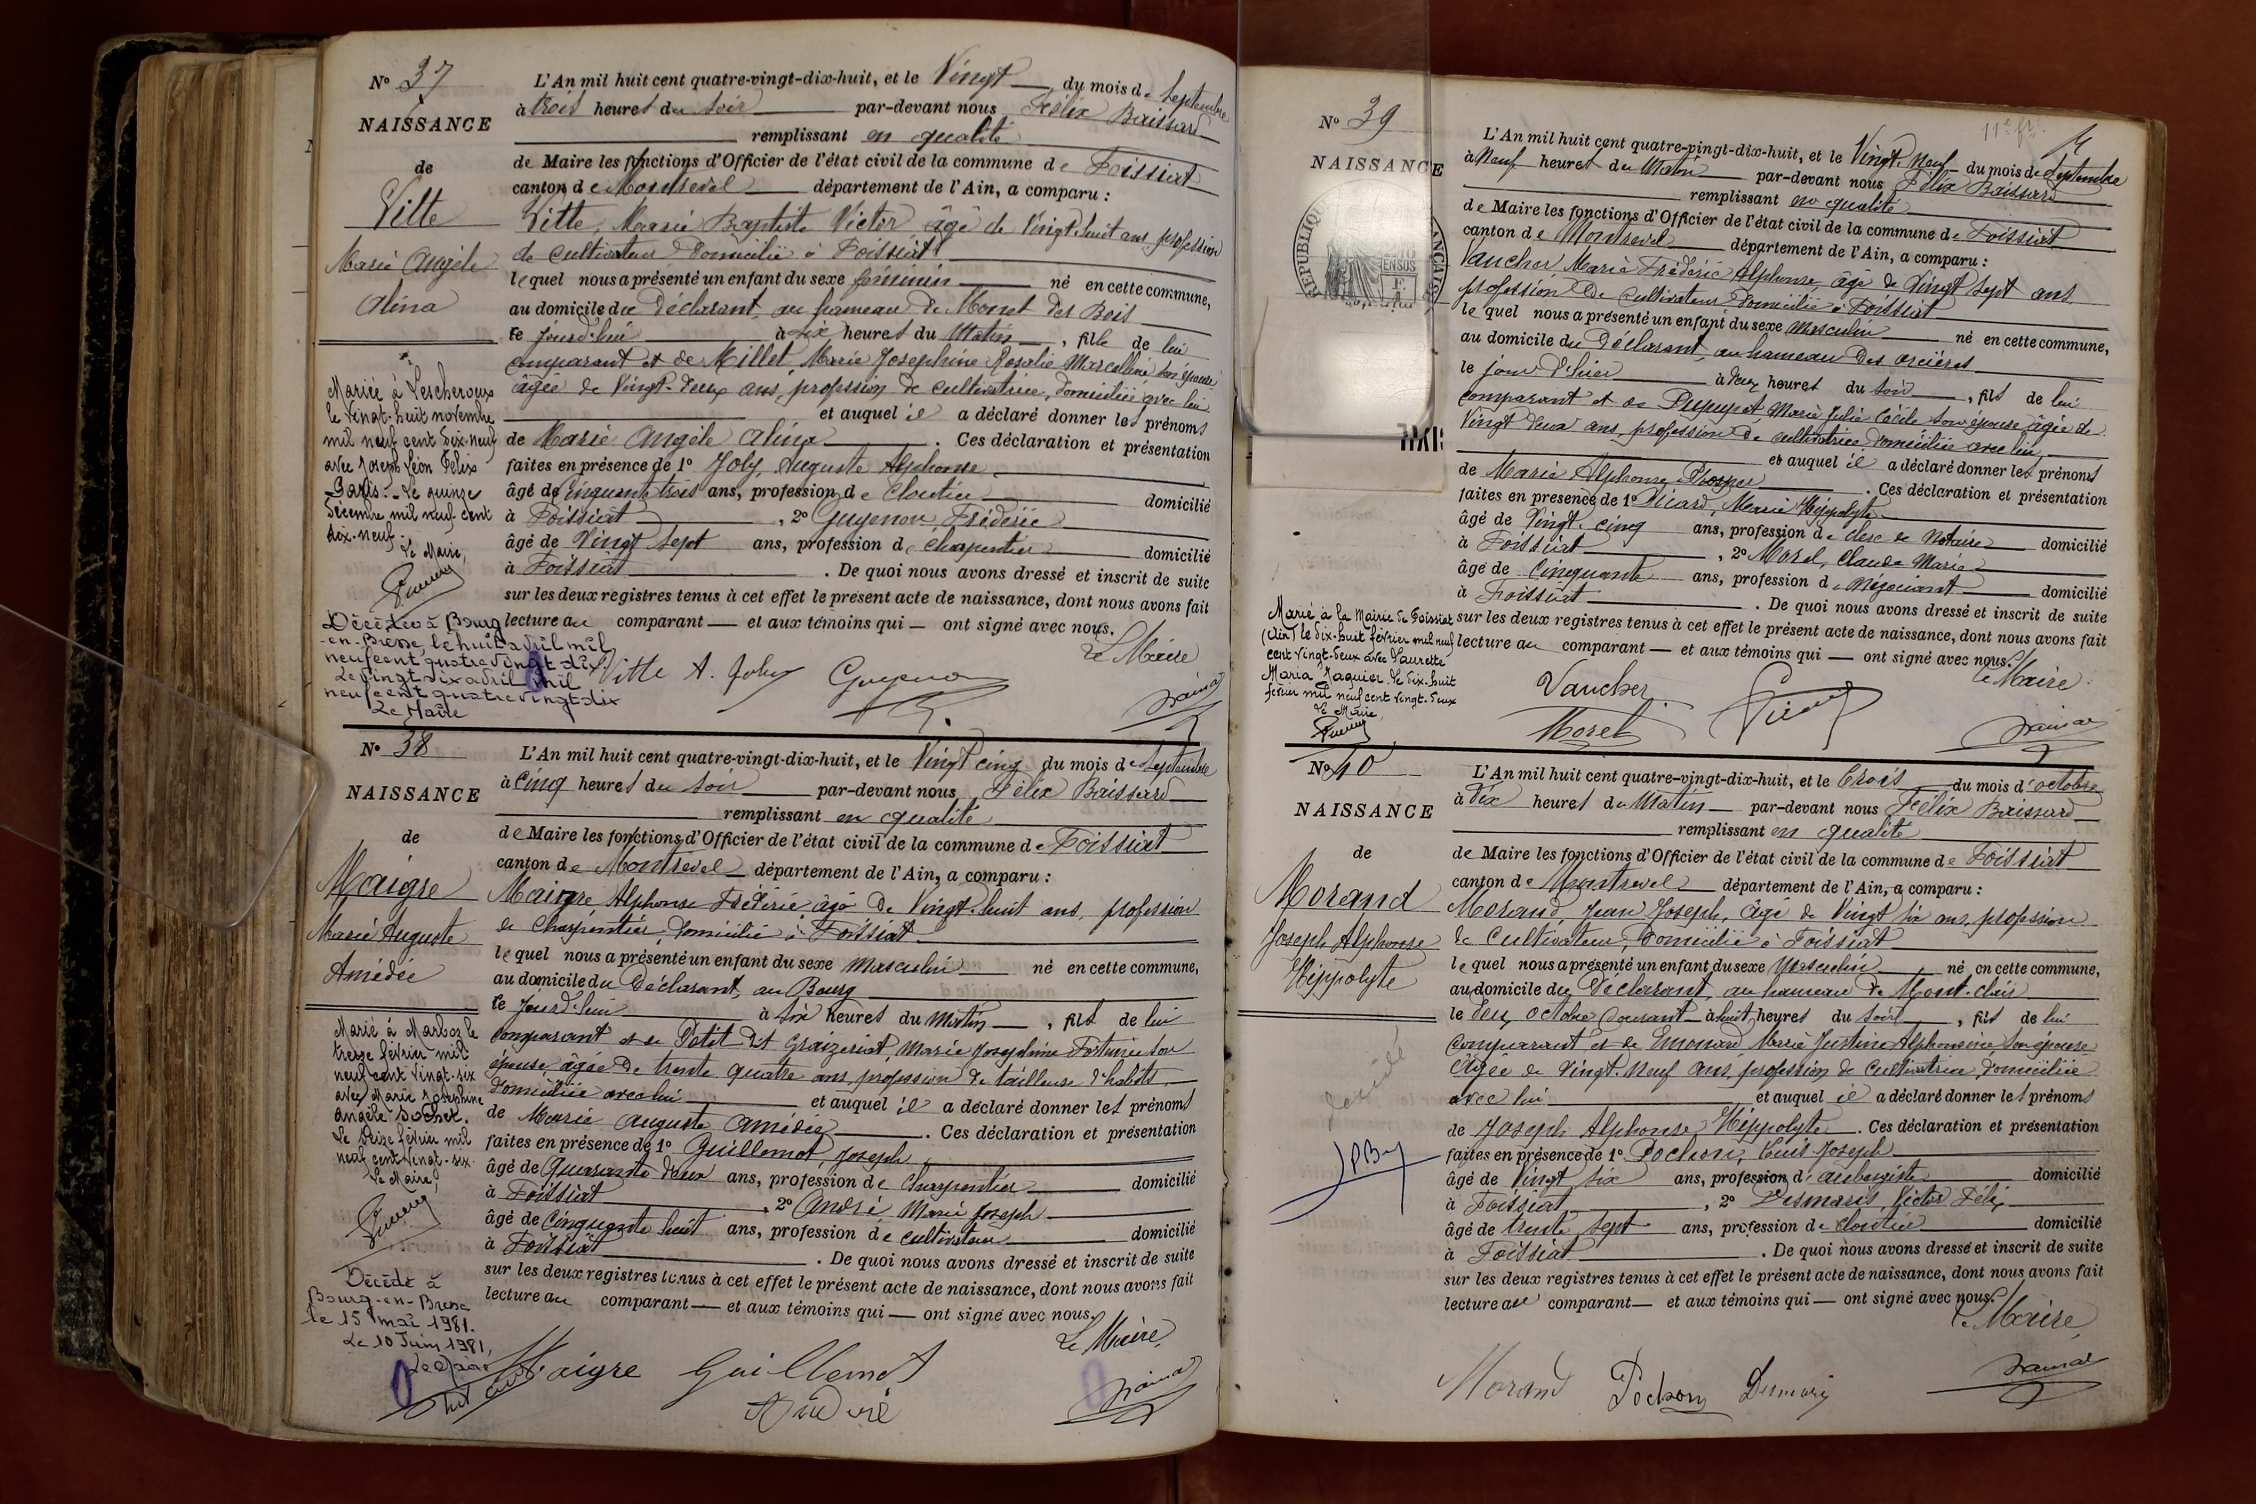 N° 37
NAISSANCE
de
Vitte
Marie Angèle
Alina
Mariée à Lescheroux
le vingt-huit novembre
mil neuf cent dix-neuf
avec Joseph Léon Félix
Le quinze
décembre mil neuf cent
dix-neuf.
Le Maire,
Décédée à Bourg
-en-Bresse, le huit avril mil
neuf cent quatre vingt dix
Le vingt six avril mil
neuf cent quatre vingt dix
Le Maire
L'An mil huit cent quatre-vingt-dix-huit, et le Vingt du mois de Septembre
à trois heures du soir par-devant nous Félix Baissard
remplissant en qualité
de Maire les fonctions d'Officier de l'état civil de la commune de Foissiat
canton de Montrevel département de l'Ain, a comparu :
Vitte, Marie Baptiste Victor, âgé de Vingt-huit ans, profession
de cultivateur domicilié à Foissiat
lequel nous a présenté un enfant du sexe féminin né en cette commune,
au domicile du Déclarant, au hameau de Monet des Bois
ce jourd'hui à six heures du Matin, fille de lui
comparant et de Millet, Marie Josephine Rosalie Marcelline son épouse
âgée de Vingt-deux ans, profession de cultivatrice, domiciliée avec lui
et auquel il a déclaré donner les prénoms
de Marie Angèle Alina. Ces déclaration et présentation
faites en présence de 1° Joly, Auguste Alphonse
âgé de cinquante trois ans, profession de cloutier domicilié
à Foissiat, 2° Guyenon, Fréderic
âgé de Vingt sept ans, profession de charpentier domicilié
à Foissiat. De quoi nous avons dressé et inscrit de suite
sur les deux registres tenus à cet effet le présent acte de naissance, dont nous avons fait
lecture au comparant — et aux témoins qui — ont signé avec nous.
Le Maire
Vitte A. Joly Guyenon
N° 38
NAISSANCE
de
Maigre
Marie Auguste
Amédée
Marié à Marboz le
treize février mil
neuf cent vingt-six
avec Marie Josephine
Angèle Bochet.
Le seize février mil
neuf cent vingt-six
Le Maire,
Décédé à
Bourg-en-Bresse
le 15 mai 1981.
Le 10 Juin 1981,
L'An mil huit cent quatre-vingt-dix-huit, et le Vingt cinq du mois de Septembre
à cinq heures du soir par-devant nous Félix Baissard
remplissant en qualité
de Maire les fonctions d'Officier de l'état civil de la commune de Foissiat
canton de Montrevel département de l'Ain, a comparu :
Maigre Alphonse Fréderic âgé de Vingt-huit ans, profession
de Charpentier, domicilié à Foissiat
lequel nous a présenté un enfant du sexe masculin né en cette commune,
au domicile du Déclarant, au Bourg
ce jourd'hui à six heures du matin, fils de lui
comparant et de Petit dit Graizeriat, Marie Josephine Fortunée son
épouse, âgée de trente quatre ans, profession de tailleuse d'habits
domiciliée avec lui et auquel il a déclaré donner les prénoms
de Marie Auguste Amédée. Ces déclaration et présentation
faites en présence de 1° Guillemot, Joseph
âgé de Quarante deux ans, profession de Charpentier domicilié
à Foissiat, 2° André, Marie Joseph
âgé de Cinquante huit ans, profession de cultivateur domicilié
à Foissiat. De quoi nous avons dressé et inscrit de suite
sur les deux registres tenus à cet effet le présent acte de naissance, dont nous avons fait
lecture au comparant — et aux témoins qui — ont signé avec nous.
Le Maire,
Maigre Guillemot
André
N° 39
NAISSANCE
Marié à la Mairie de Foissiat
(Ain) le dix-huit février mil neuf
cent vingt-deux avec Laurette
Maria Jaquier. Le dix-huit
février mil neuf cent vingt-deux
Le Maire,
L'An mil huit cent quatre-vingt-dix-huit, et le Vingt-neuf du mois de Septembre
à Neuf heures du Matin par-devant nous Félix Baissard
remplissant en qualité
de Maire les fonctions d'Officier de l'état civil de la commune de Foissiat
canton de Montrevel département de l'Ain, a comparu :
Vaucher Marie Fréderic Alphonse, âgé de Vingt sept ans
profession de cultivateur domicilié à Foissiat
lequel nous a présenté un enfant du sexe masculin né en cette commune,
au domicile du Déclarant, au hameau des Orcières
le jour d'hier à deux heures du soir, fils de lui
comparant et de Pupunat, Marie Julie Cécile son épouse âgée de
Vingt deux ans, profession de cultivatrice domiciliée avec lui
et auquel il a déclaré donner les prénoms
de Marie Alphonse Prosper. Ces déclaration et présentation
faites en présence de 1° Picard, Marie Hippolyte
âgé de Vingt-cinq ans, profession de clerc de Notaire domicilié
à Foissiat, 2° Morel, Claude Marie
âgé de Cinquante ans, profession de Négociant domicilié
à Foissiat. De quoi nous avons dressé et inscrit de suite
sur les deux registres tenus à cet effet le présent acte de naissance, dont nous avons fait
lecture au comparant — et aux témoins qui — ont signé avec nous.
Le Maire
Vaucher
Morel
N° 40
NAISSANCE
de
Morand
Joseph Alphonse
Hippolyte
L'An mil huit cent quatre-vingt-dix-huit, et le Trois du mois d'octobre
à dix heures du Matin par-devant nous Félix Baissard
remplissant en qualité
de Maire les fonctions d'Officier de l'état civil de la commune de Foissiat
canton de Montrevel département de l'Ain, a comparu :
Morand, Jean Joseph, âgé de Vingt six ans, profession
de Cultivateur, domicilié à Foissiat
lequel nous a présenté un enfant du sexe Masculin né en cette commune,
au domicile du Déclarant, au hameau de Mont-clair
le deux octobre courant à huit heures du soir, fils de lui
comparant et de Emonard Marie Justine Alphonsine son épouse
âgée de Vingt-neuf ans, profession de cultivatrice, domiciliée
avec lui et auquel il a déclaré donner les prénoms
de Joseph Alphonse Hippolyte. Ces déclaration et présentation
faites en présence de 1° Pochon, Louis Joseph
âgé de Vingt six ans, profession d'aubergiste domicilié
à Foissiat, 2° Desmaris, Victor Félix
âgé de trente sept ans, profession de cloutier domicilié
à Foissiat. De quoi nous avons dressé et inscrit de suite
sur les deux registres tenus à cet effet le présent acte de naissance, dont nous avons fait
lecture au comparant — et aux témoins qui — ont signé avec nous.
Le Maire,
Morand Pochon Desmaris